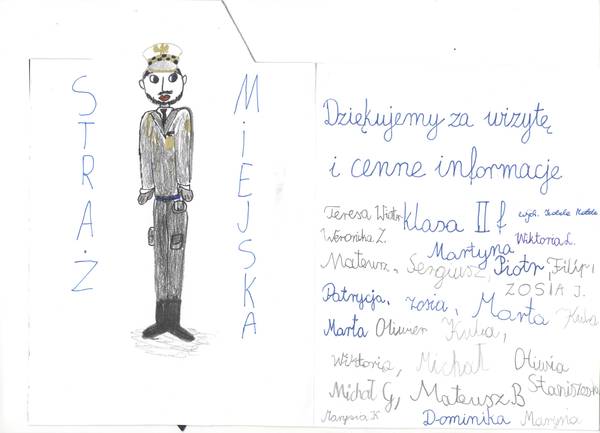 STRAŻ
MIEJSKA
Dziękujemy za wizytę
i cenne informacje
Teresa klasa II f wych.
Weronika Z. Martyna Wiktoria L.
Mateusz, Sergiusz, Piotr, Filip,
ZOSIA J.
Patrycja, zosia, Marta Kuba
Marta Oliwier Kuba,
Wiktoria, Michał Oliwia
Michał G, Mateusz.B
Dominika Maryna